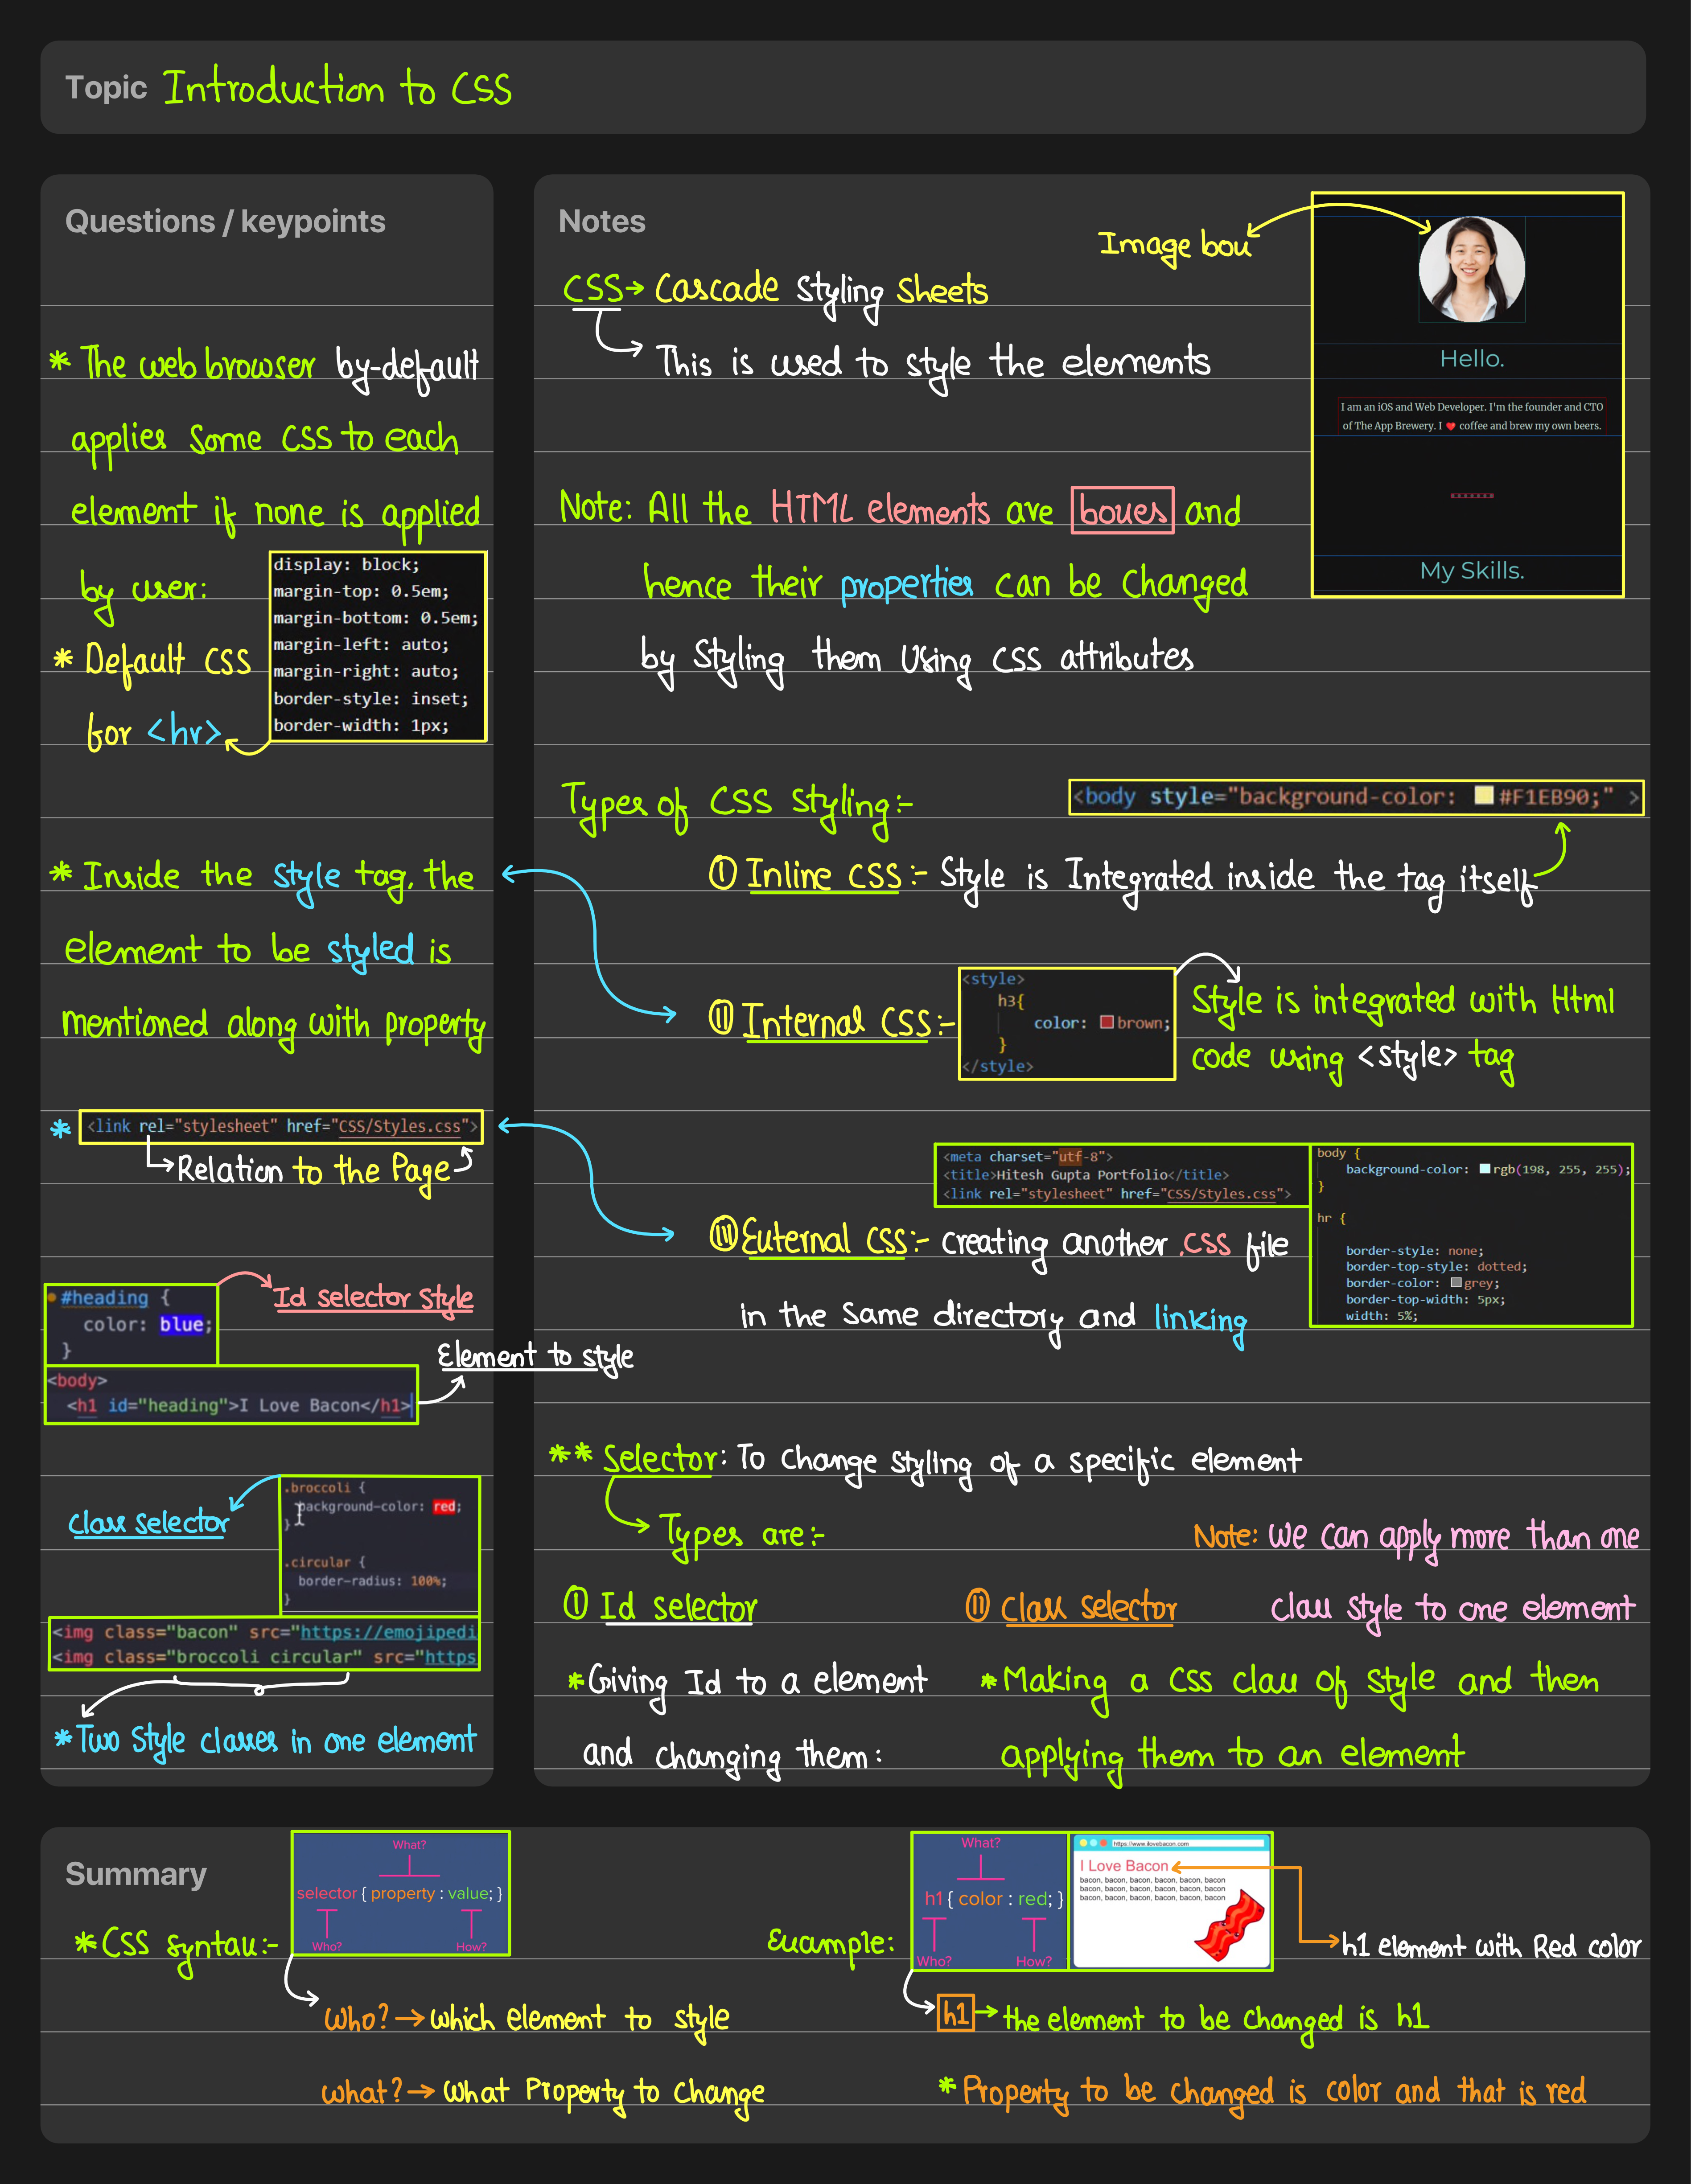 Topic Introduction to CSS
Questions / keypoints
* The web browser by-default
applies some CSS to each
element if none is applied
by user:
display: block;
margin-top: 0.5em;
margin-bottom: 0.5em;
margin-left: auto;
margin-right: auto;
border-style: inset;
border-width: 1px;
* Default CSS
for <hr>
* Inside the style tag, the
element to be styled is
mentioned along with property
* <link rel="stylesheet" href="CSS/Styles.css">
Relation to the Page
#heading {
color: blue;
}
Id selector style
<body>
<h1 id="heading">I Love Bacon</h1>
Element to style
Class selector
.broccoli {
background-color: red;
}
.circular {
border-radius: 100%;
}
<img class="bacon" src="https://emojipedi
<img class="broccoli circular" src="https
* Two style classes in one element
Notes
Image box
CSS → Cascade Styling Sheets
This is used to style the elements
Hello.
I am an iOS and Web Developer. I'm the founder and CTO
of The App Brewery. I ❤ coffee and brew my own beers.
My Skills.
Note: All the HTML elements are boxes and
hence their properties can be changed
by Styling them Using CSS attributes
Types of CSS Styling:-
<body style="background-color: #F1EB90;" >
① Inline CSS:- Style is Integrated inside the tag itself
② Internal CSS:-
<style>
h3{
color: brown;
}
</style>
Style is integrated with Html
code using <style> tag
<meta charset="utf-8">
<title>Hitesh Gupta Portfolio</title>
<link rel="stylesheet" href="CSS/Styles.css">
body {
background-color: rgb(198, 255, 255);
}
hr {
border-style: none;
border-top-style: dotted;
border-color: grey;
border-top-width: 5px;
width: 5%;
③ External CSS:- creating another .css file
in the same directory and linking
** Selector: To change styling of a specific element
Types are:-
Note: We can apply more than one
class style to one element
① Id selector
② Class selector
* Giving Id to a element
and changing them:
* Making a CSS class of style and then
applying them to an element
Summary
* CSS syntax:-
What?
selector { property : value; }
Who? How?
Who? → which element to style
what? → What Property to change
Example:
What?
h1 { color : red; }
Who? How?
https://www.ilovebacon.com
I Love Bacon
bacon, bacon, bacon, bacon, bacon, bacon
bacon, bacon, bacon, bacon, bacon, bacon
bacon, bacon, bacon, bacon, bacon, bacon
h1 element with Red color
h1 → the element to be changed is h1
* Property to be changed is color and that is red